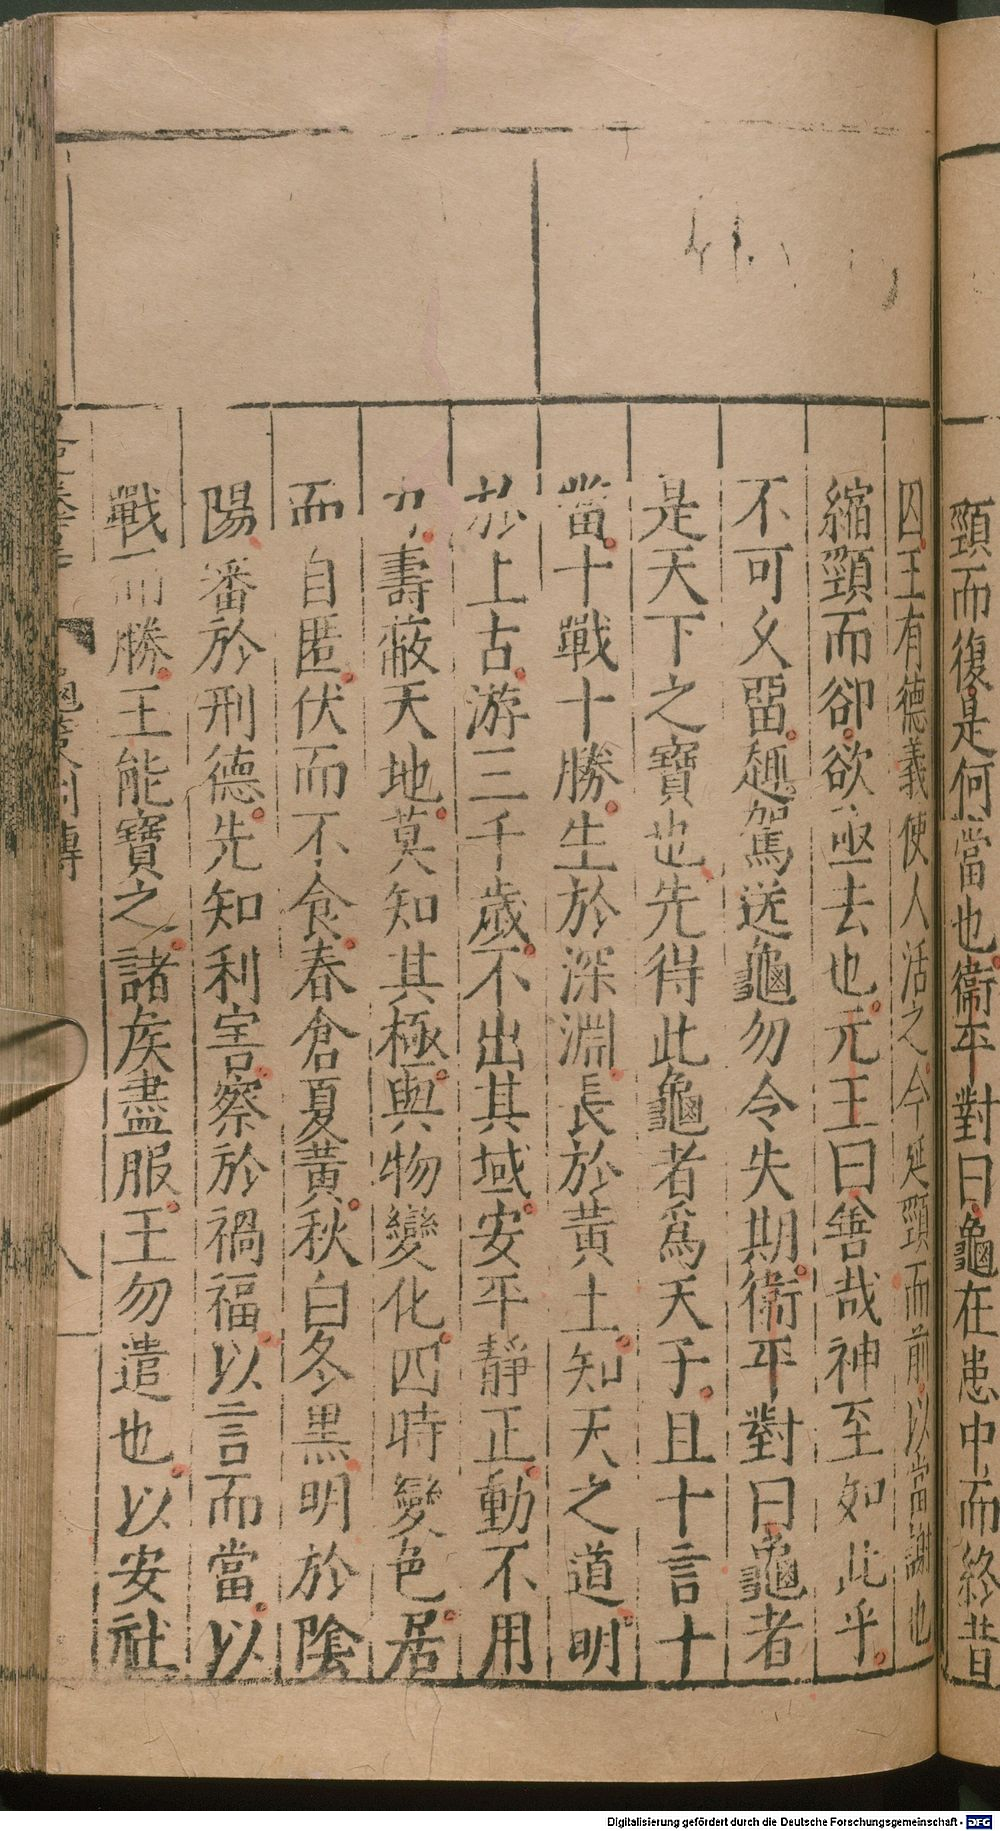 頸而復是何當也衞平對曰龜在患中而終昔
囚王有德義使人活之今延頸而前以當謝也
縮頸而卻欲亟去也元王曰善哉神至如此乎
不可久畱趣駕送龜勿令失期衞平對曰龜者
是天下之寶也先得此龜者爲天子且十言十
當十戰十勝生於深淵長於黃土知天之道明
於上古游三千歲不出其域安平靜正動不用
力壽蔽天地莫知其極與物變化四時變色居
而自匿伏而不食春倉夏黃秋白冬黑明於陰
陽審於刑德先知利害察於禍福以言而當以
戰而勝王能寶之諸矦盡服王勿遣也以安社
龜筴列傳
八
Digitalisierung gefördert durch die Deutsche Forschungsgemeinschaft - DFG